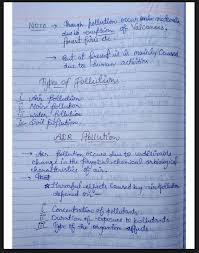 Note → Though pollution occur from natural
due to eruption of Valcanoes,
forest fires etc.
→ But at present it is mainly caused
due to human activities.
Types of Pollution
Air Pollution
Noise Pollution
Water Pollution
Soil Pollution
Air Pollution
→ Air pollution occurs due to undesirable
change in the physical chemical or biological
characteristics of air.
→ Harmful effects caused by air pollution
depend on -
Concentration of pollutants
Duration of exposure to pollutants
Type of the organism affects